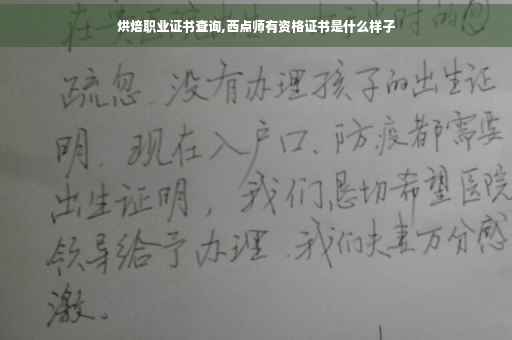 烘焙职业证书查询,西点师有资格证书是什么样子
疏忽、没有办理孩子的出生证
明、现在入户口、防疫都需要
出生证明，我们恳切希望医院
领导给予办理、我们夫妻万分感
激。